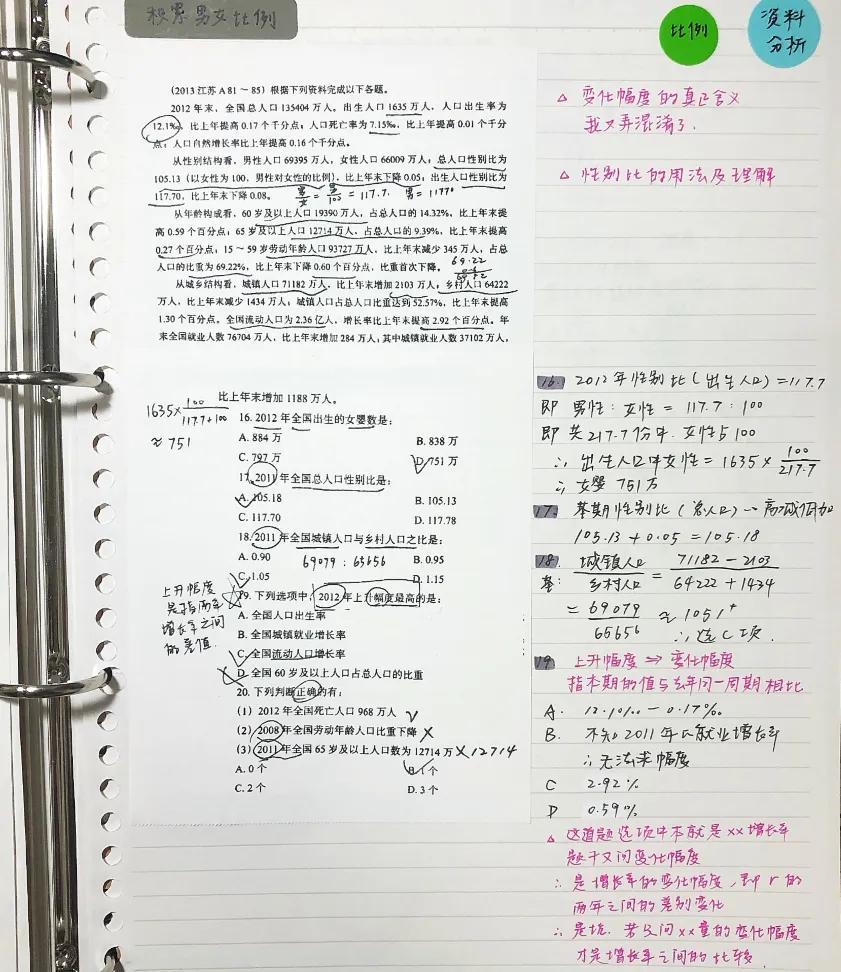 积累男女比例
比例
资料
分析
(2013 江苏 A 81 ~ 85) 根据下列资料完成以下各题。
2012 年末，全国总人口 135404 万人。出生人口 1635 万人，人口出生率为
12.1‰，比上年提高 0.17 个千分点；人口死亡率为 7.15‰，比上年提高 0.01 个千分
点；人口自然增长率比上年提高 0.16 个千分点。
从性别结构看，男性人口 69395 万人，女性人口 66009 万人；总人口性别比为
105.13（以女性为 100，男性对女性的比例），比上年末下降 0.05；出生人口性别比为
117.70，比上年末下降 0.08。
男/女 = 男/100 = 117.7. 男 = 11770
从年龄构成看，60 岁及以上人口 19390 万人，占总人口的 14.32%，比上年末提
高 0.59 个百分点；65 岁及以上人口 12714 万人，占总人口的 9.39%，比上年末提高
0.27 个百分点；15 ~ 59 岁劳动年龄人口 93727 万人，比上年末减少 345 万人，占总
人口的比重为 69.22%，比上年末下降 0.60 个百分点，比重首次下降。
69.22
从城乡结构看，城镇人口 71182 万人，比上年末增加 2103 万人；乡村人口 64222
万人，比上年末减少 1434 万人；城镇人口占总人口比重达到 52.57%，比上年末提高
1.30 个百分点。全国流动人口为 2.36 亿人，增长率比上年末提高 2.92 个百分点。年
末全国就业人数 76704 万人，比上年末增加 284 万人；其中城镇就业人数 37102 万人，
比上年末增加 1188 万人。
1635×100/117.7+100
≈751
16. 2012 年全国出生的女婴数是：
A. 884 万
B. 838 万
C. 797 万
D. 751 万
17. 2011 年全国总人口性别比是：
A. 105.18
B. 105.13
C. 117.70
D. 117.78
18. 2011 年全国城镇人口与乡村人口之比是：
A. 0.90
69079 : 65656
B. 0.95
C. 1.05
D. 1.15
上升幅度
是指两年
增长率之间
的差值
19. 下列选项中，2012 年上升幅度最高的是：
A. 全国人口出生率
B. 全国城镇就业增长率
C. 全国流动人口增长率
D. 全国 60 岁及以上人口占总人口的比重
20. 下列判断正确的有：
(1) 2012 年全国死亡人口 968 万人
(2) 2008 年全国劳动年龄人口比重下降
(3) 2011 年全国 65 岁及以上人口数为 12714 万 12714
A. 0 个
B. 1 个
C. 2 个
D. 3 个
△ 变化幅度的真正含义
我又弄混淆了.
△ 性别比的用法及理解
16. 2012年性别比(出生人口)=117.7
即 男性:女性 = 117.7 : 100
即共217.7份中.女性占100
∴ 出生人口中女性=1635×100/217.7
∴ 女婴 751万
17. 基期性别比(总人口)→高减低加
105.13 + 0.05 = 105.18
18. 城镇人口/乡村人口 = 71182-2103/64222+1434
基:
= 69079/65656 ≈ 1051⁺
∴ 选C项.
19 上升幅度 ⇒ 变化幅度
指本期的值与去年同一周期相比
A. 12.10‰ - 0.17‰
B. 不知2011年的就业增长率
∴无法求幅度
C 2.92%
D 0.59%
△ 这道题选项中本就是xx增长率
题干又问变化幅度
∴ 是增长率的变化幅度,即r的
两年之间的差别变化
∴ 是坑.若只问xx量的变化幅度
才是增长率之间的比较.